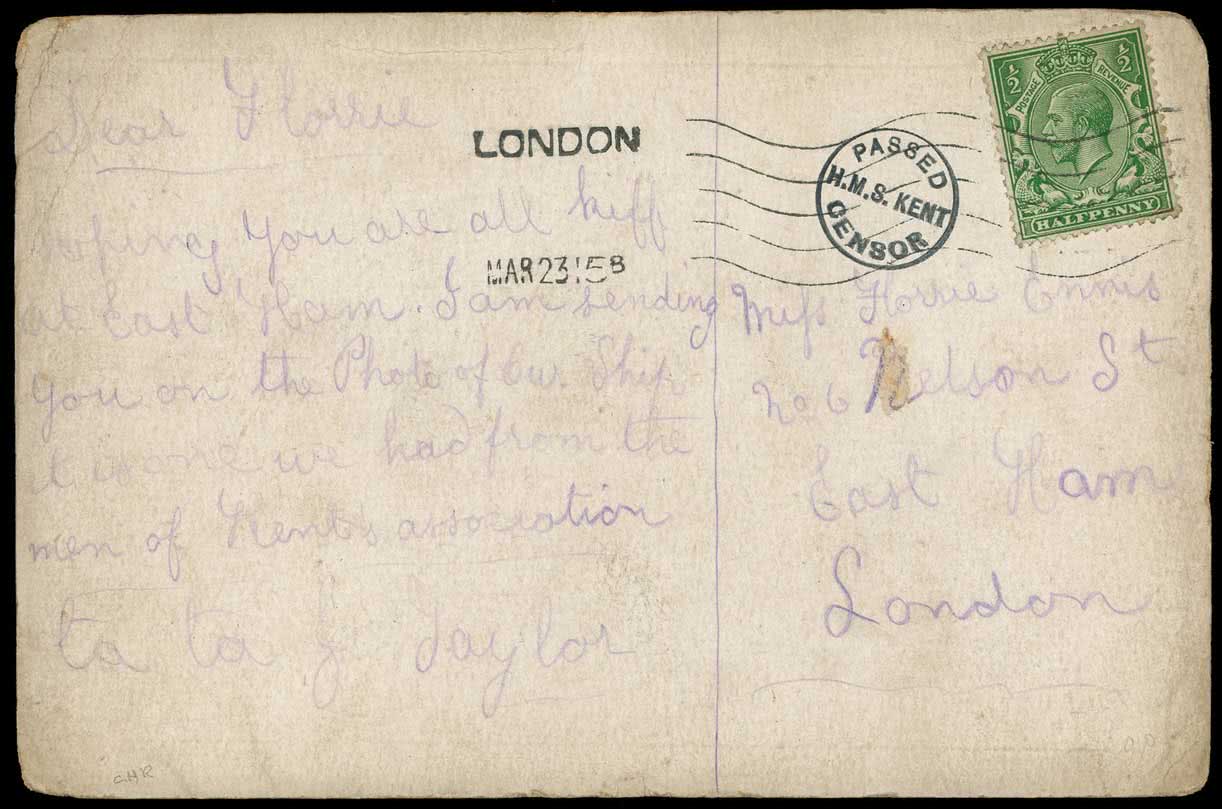 Dear Florrie
hoping you are all kiff
at East Ham. I am sending
you on the Photo of Our Ship
it is one we had from the
men of Kent's association
ta ta J Taylor
LONDON
MAR 23 15 B
PASSED
H.M.S. KENT
CENSOR
½ ½
POSTAGE REVENUE
HALFPENNY
Miss Florrie Ennis
No 6 Nelson St
East Ham
London